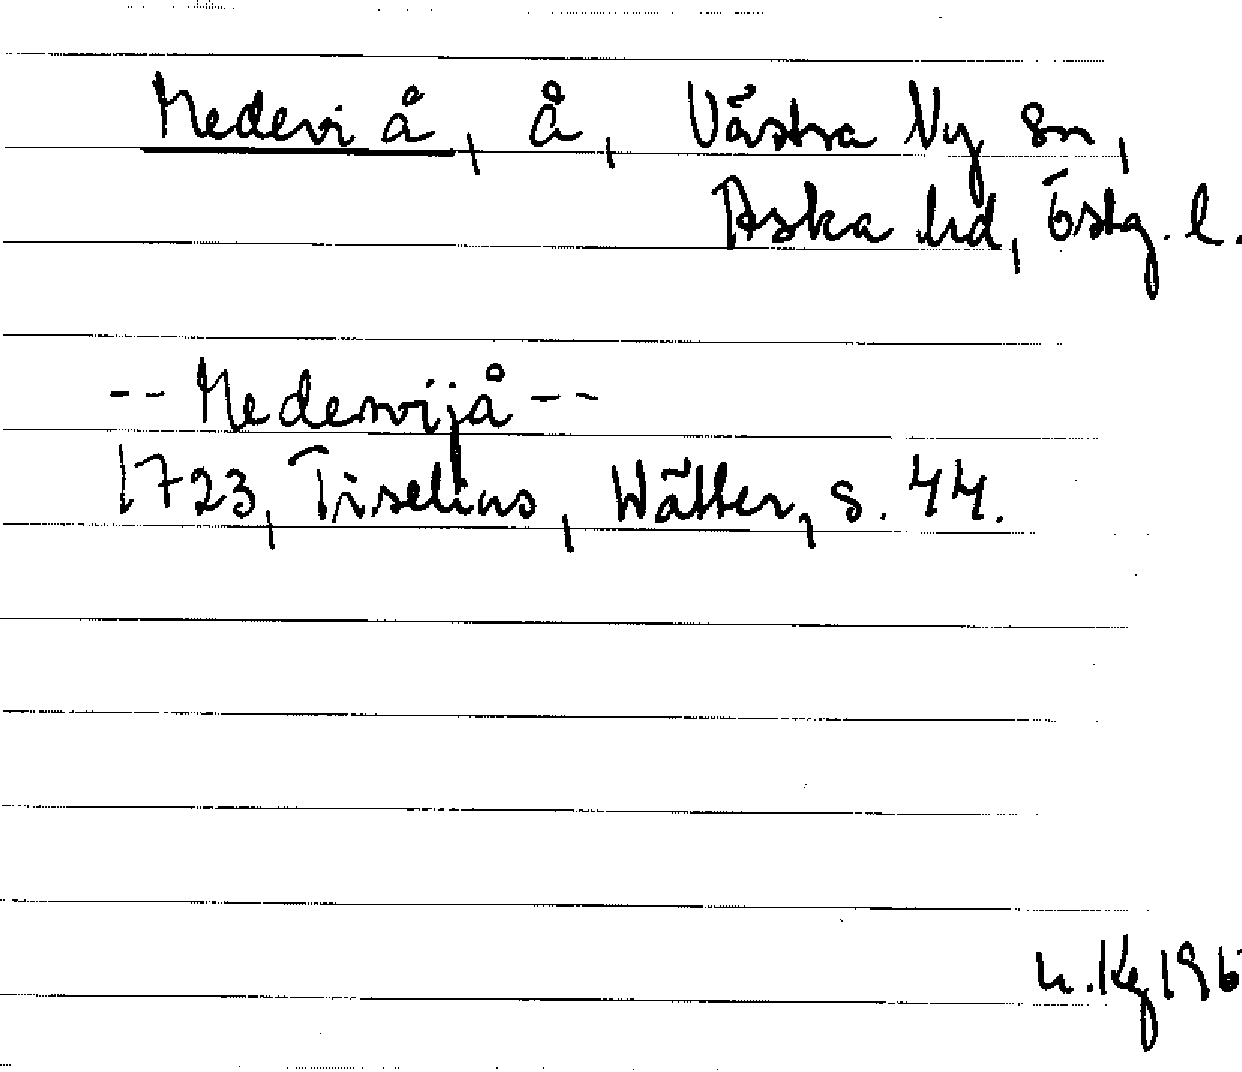 Medevi å, å, Västra Ny sn,
Aska hd, Östg. l.
-- Medevijå --
1723, Tiselius, Wätter, s. 44.